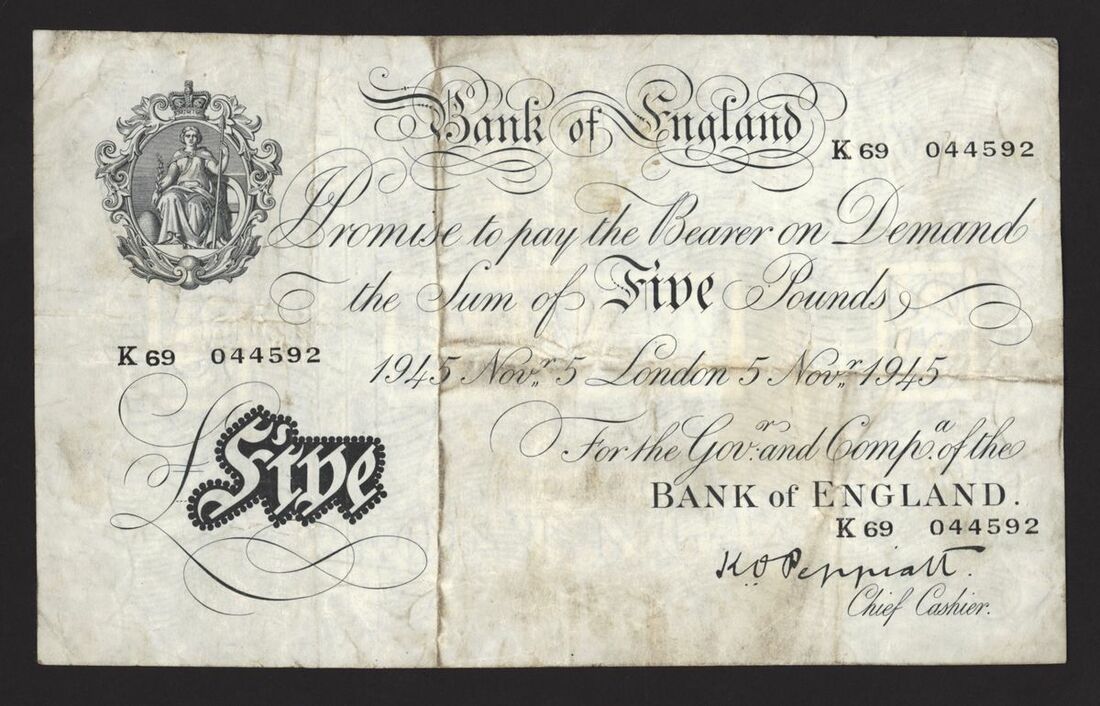 Bank of England
K 69 044592
I Promise to pay the Bearer on Demand
the Sum of Five Pounds
K 69 044592
1945 Nov.r 5 London 5 Nov.r 1945
£ Five
For the Gov.r and Comp.a of the
BANK of ENGLAND.
K 69 044592
K.O. Peppiatt.
Chief Cashier.